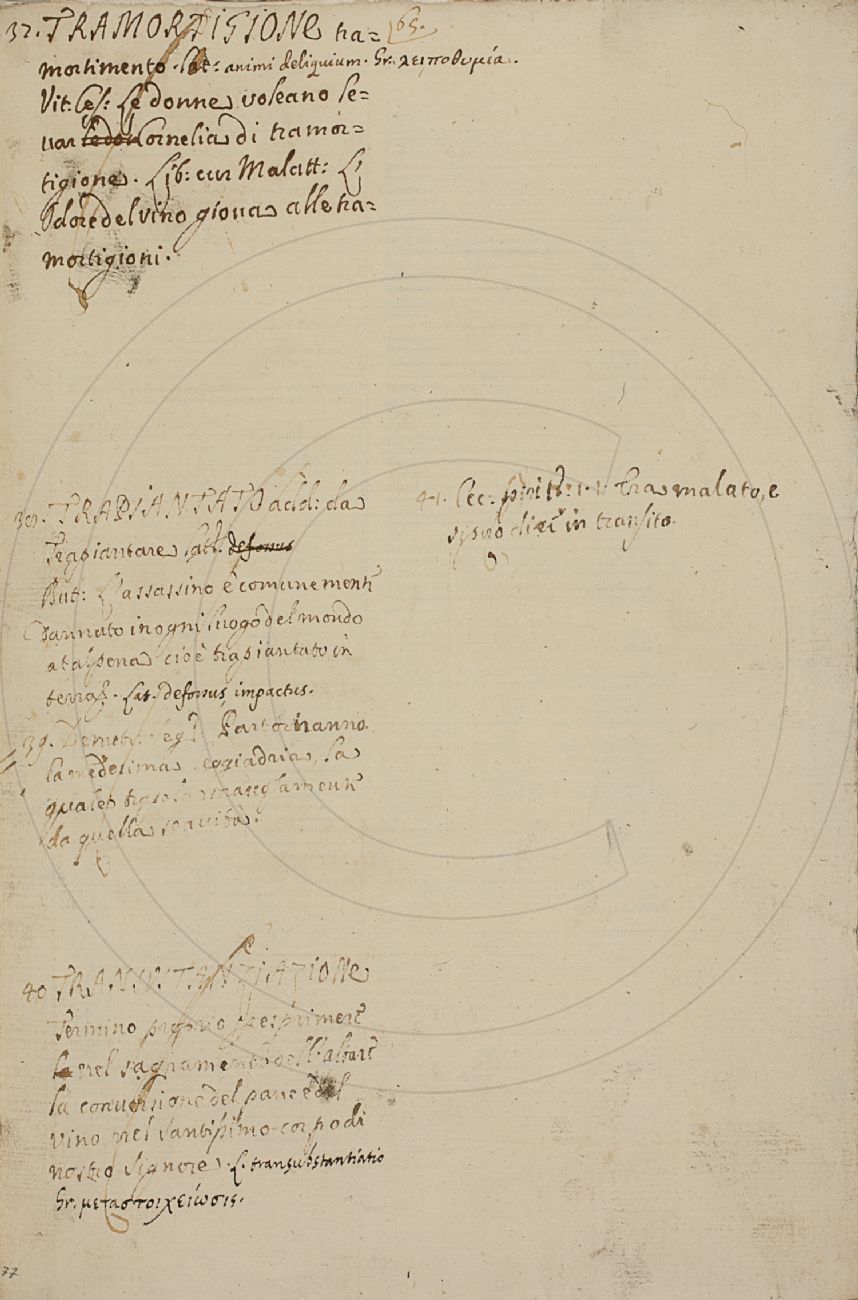 37. TRAMORTIGIONE tra=
65.
mortimento. Lat: animi deliquium. Gr. λειποθυμία.
Vit: Ces: Le donne voleano le=
var Cornelia di tramor=
tigione. Lib: cur Malatt: L'
Odore del vino giova alle tra=
mortigioni.
TRAPIANTATO add: da
Trapiantare, Lat. defossus
But: L'assassino è comunement̃
Dannato in ogni luogo del mondo
a tal pena cioè trapiantato in
terra. Lat. defossus, impactus.
39. Demetr: Seg: Partoriranno
la medesima leggiadria, la
quale
da quella soavità.
40 TRANSUSTANZIAZIONE
Termino proprio p esprimere
nel sagramento dell'altare
la conversione del pane e del
vino nel santissimo corpo di
nostro Signore. L. transubstantiatio
Gr. μεταστοιχείωσις.
41. tramalato, e
in transito.
77